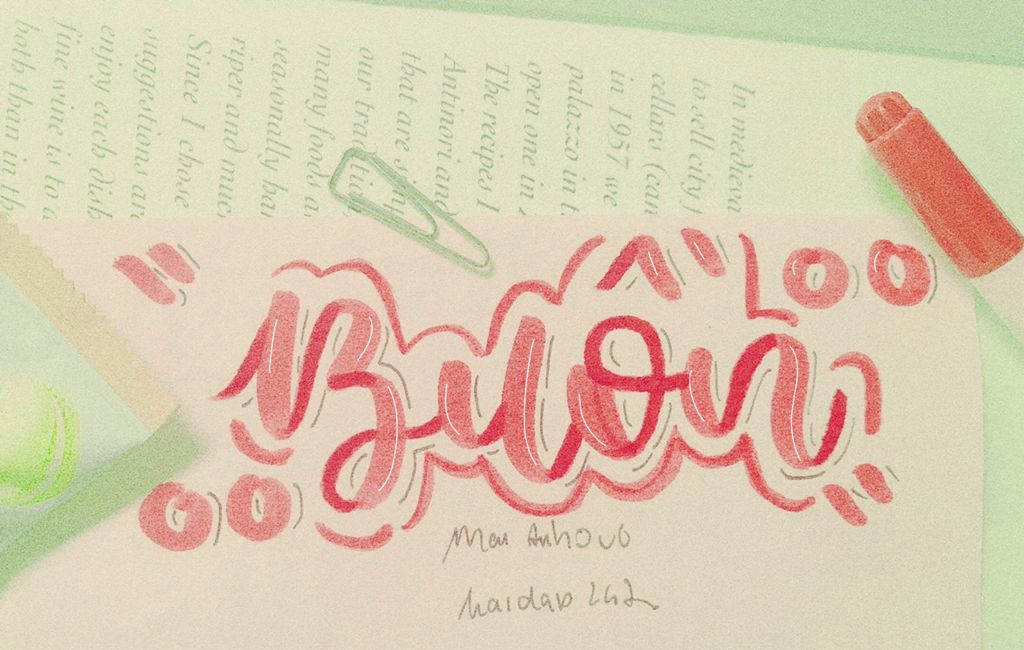 In medieva
to sell city
cellars (can
in 1957 we
palazzo in t
open one in
The recipes I
Antinori and
that are simp
our tradi
many foods a
seasonally ha
riper and muc
Since I chose
suggestions are
enjoy each dish
fine wine is to a
both than in th
Buôn